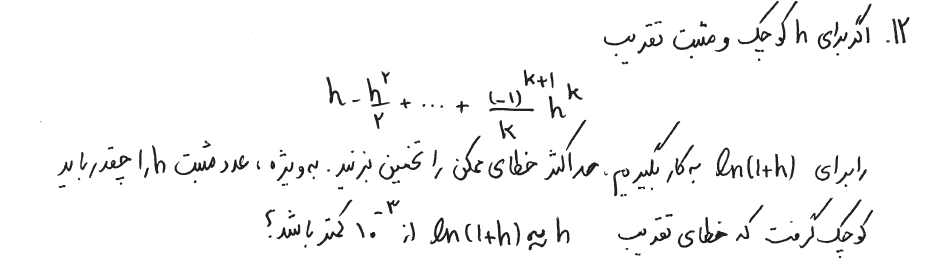 ۱۲. اگر برای h کوچک و مثبت تقریب
h - h^۲/۲ + ... + (-1)^(k+1)/k h^k
را برای ln(1+h) به کار بگیریم، حداکثر خطای ممکن را تخمین بزنید. به ویژه، عدد مثبت h را چقدر باید
کوچک گرفت که خطای تقریب h به ln(1+h) از ۱۰^-۳ کمتر باشد؟